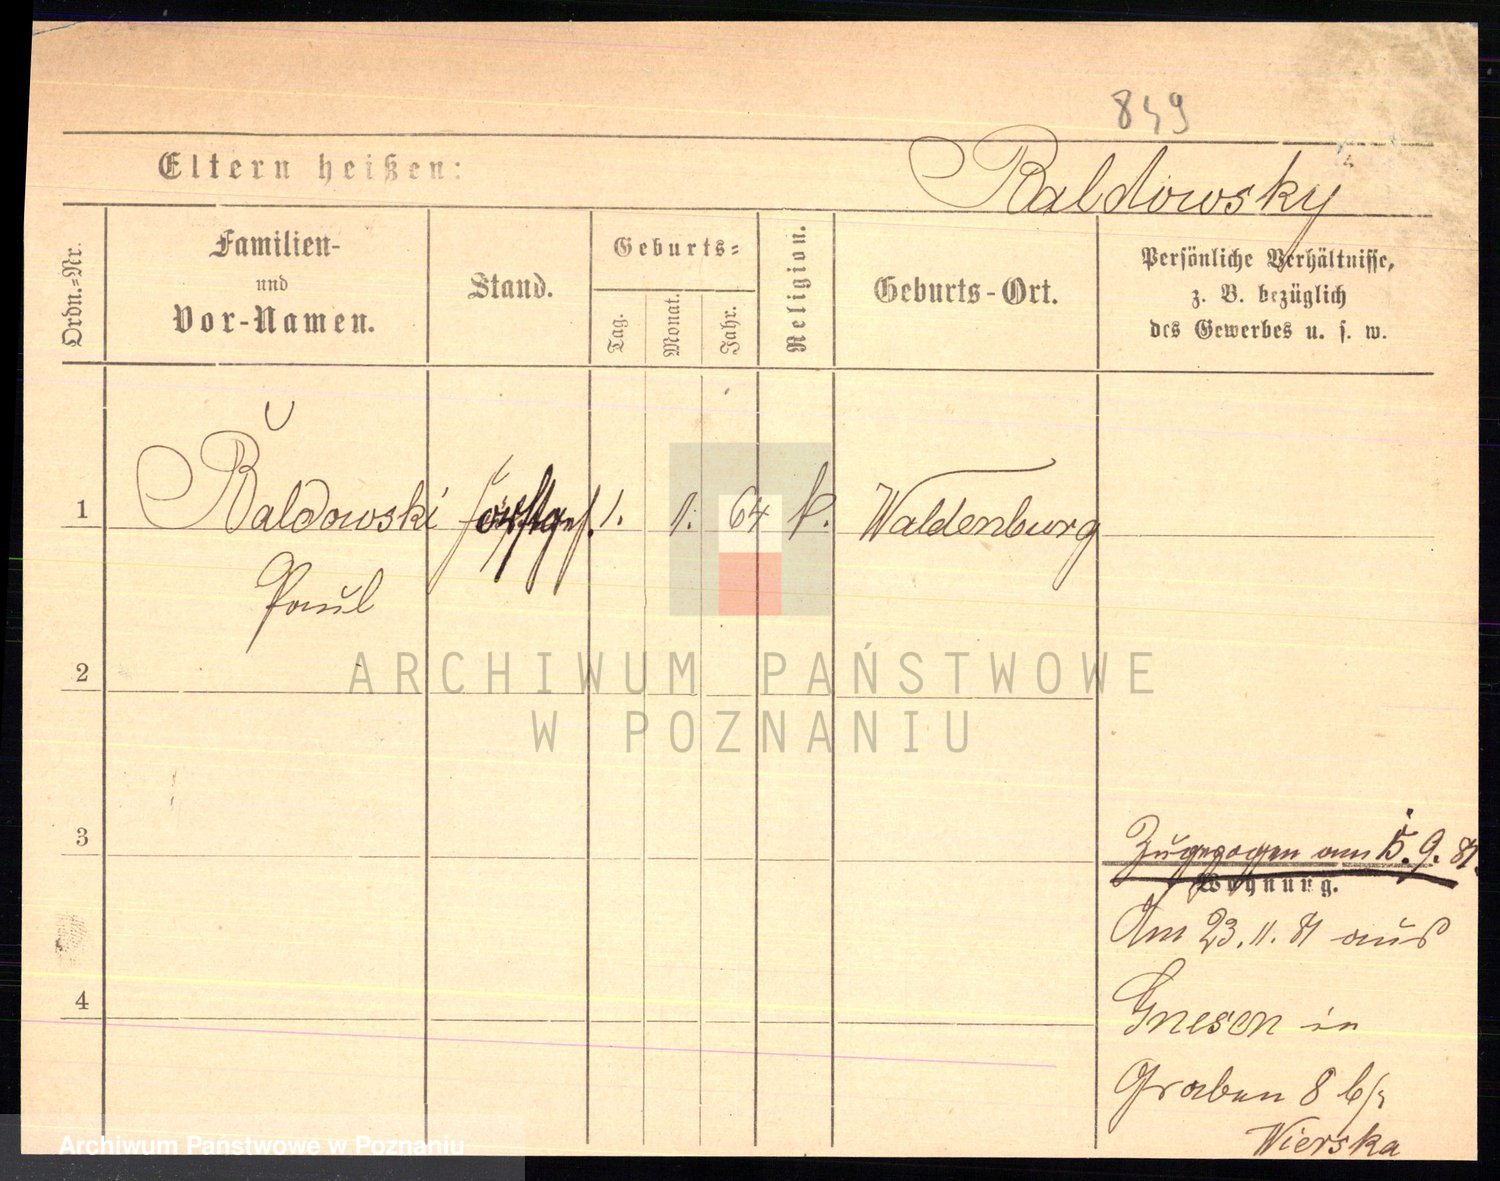 849
Eltern heißen:
Baldowsky
Ordn.=Nr.
Familien-
und
Vor-Namen.
Stand.
Geburts=
Tag.
Monat.
Jahr.
Religion.
Geburts-Ort.
Persönliche Verhältnisse,
z. B. bezüglich
des Gewerbes u. s. w.
1
Baldowski
1. 1. 64 k. Waldenburg
Paul
2
ARCHIWUM PAŃSTWOWE
W POZNANIU
3
Zugezogen am 15. 9. 81.
Wohnung.
Am 23. 11. 81 aus
Gnesen in
4
Graben 8 b/
Wierska
Archiwum Państwowe w Poznaniu